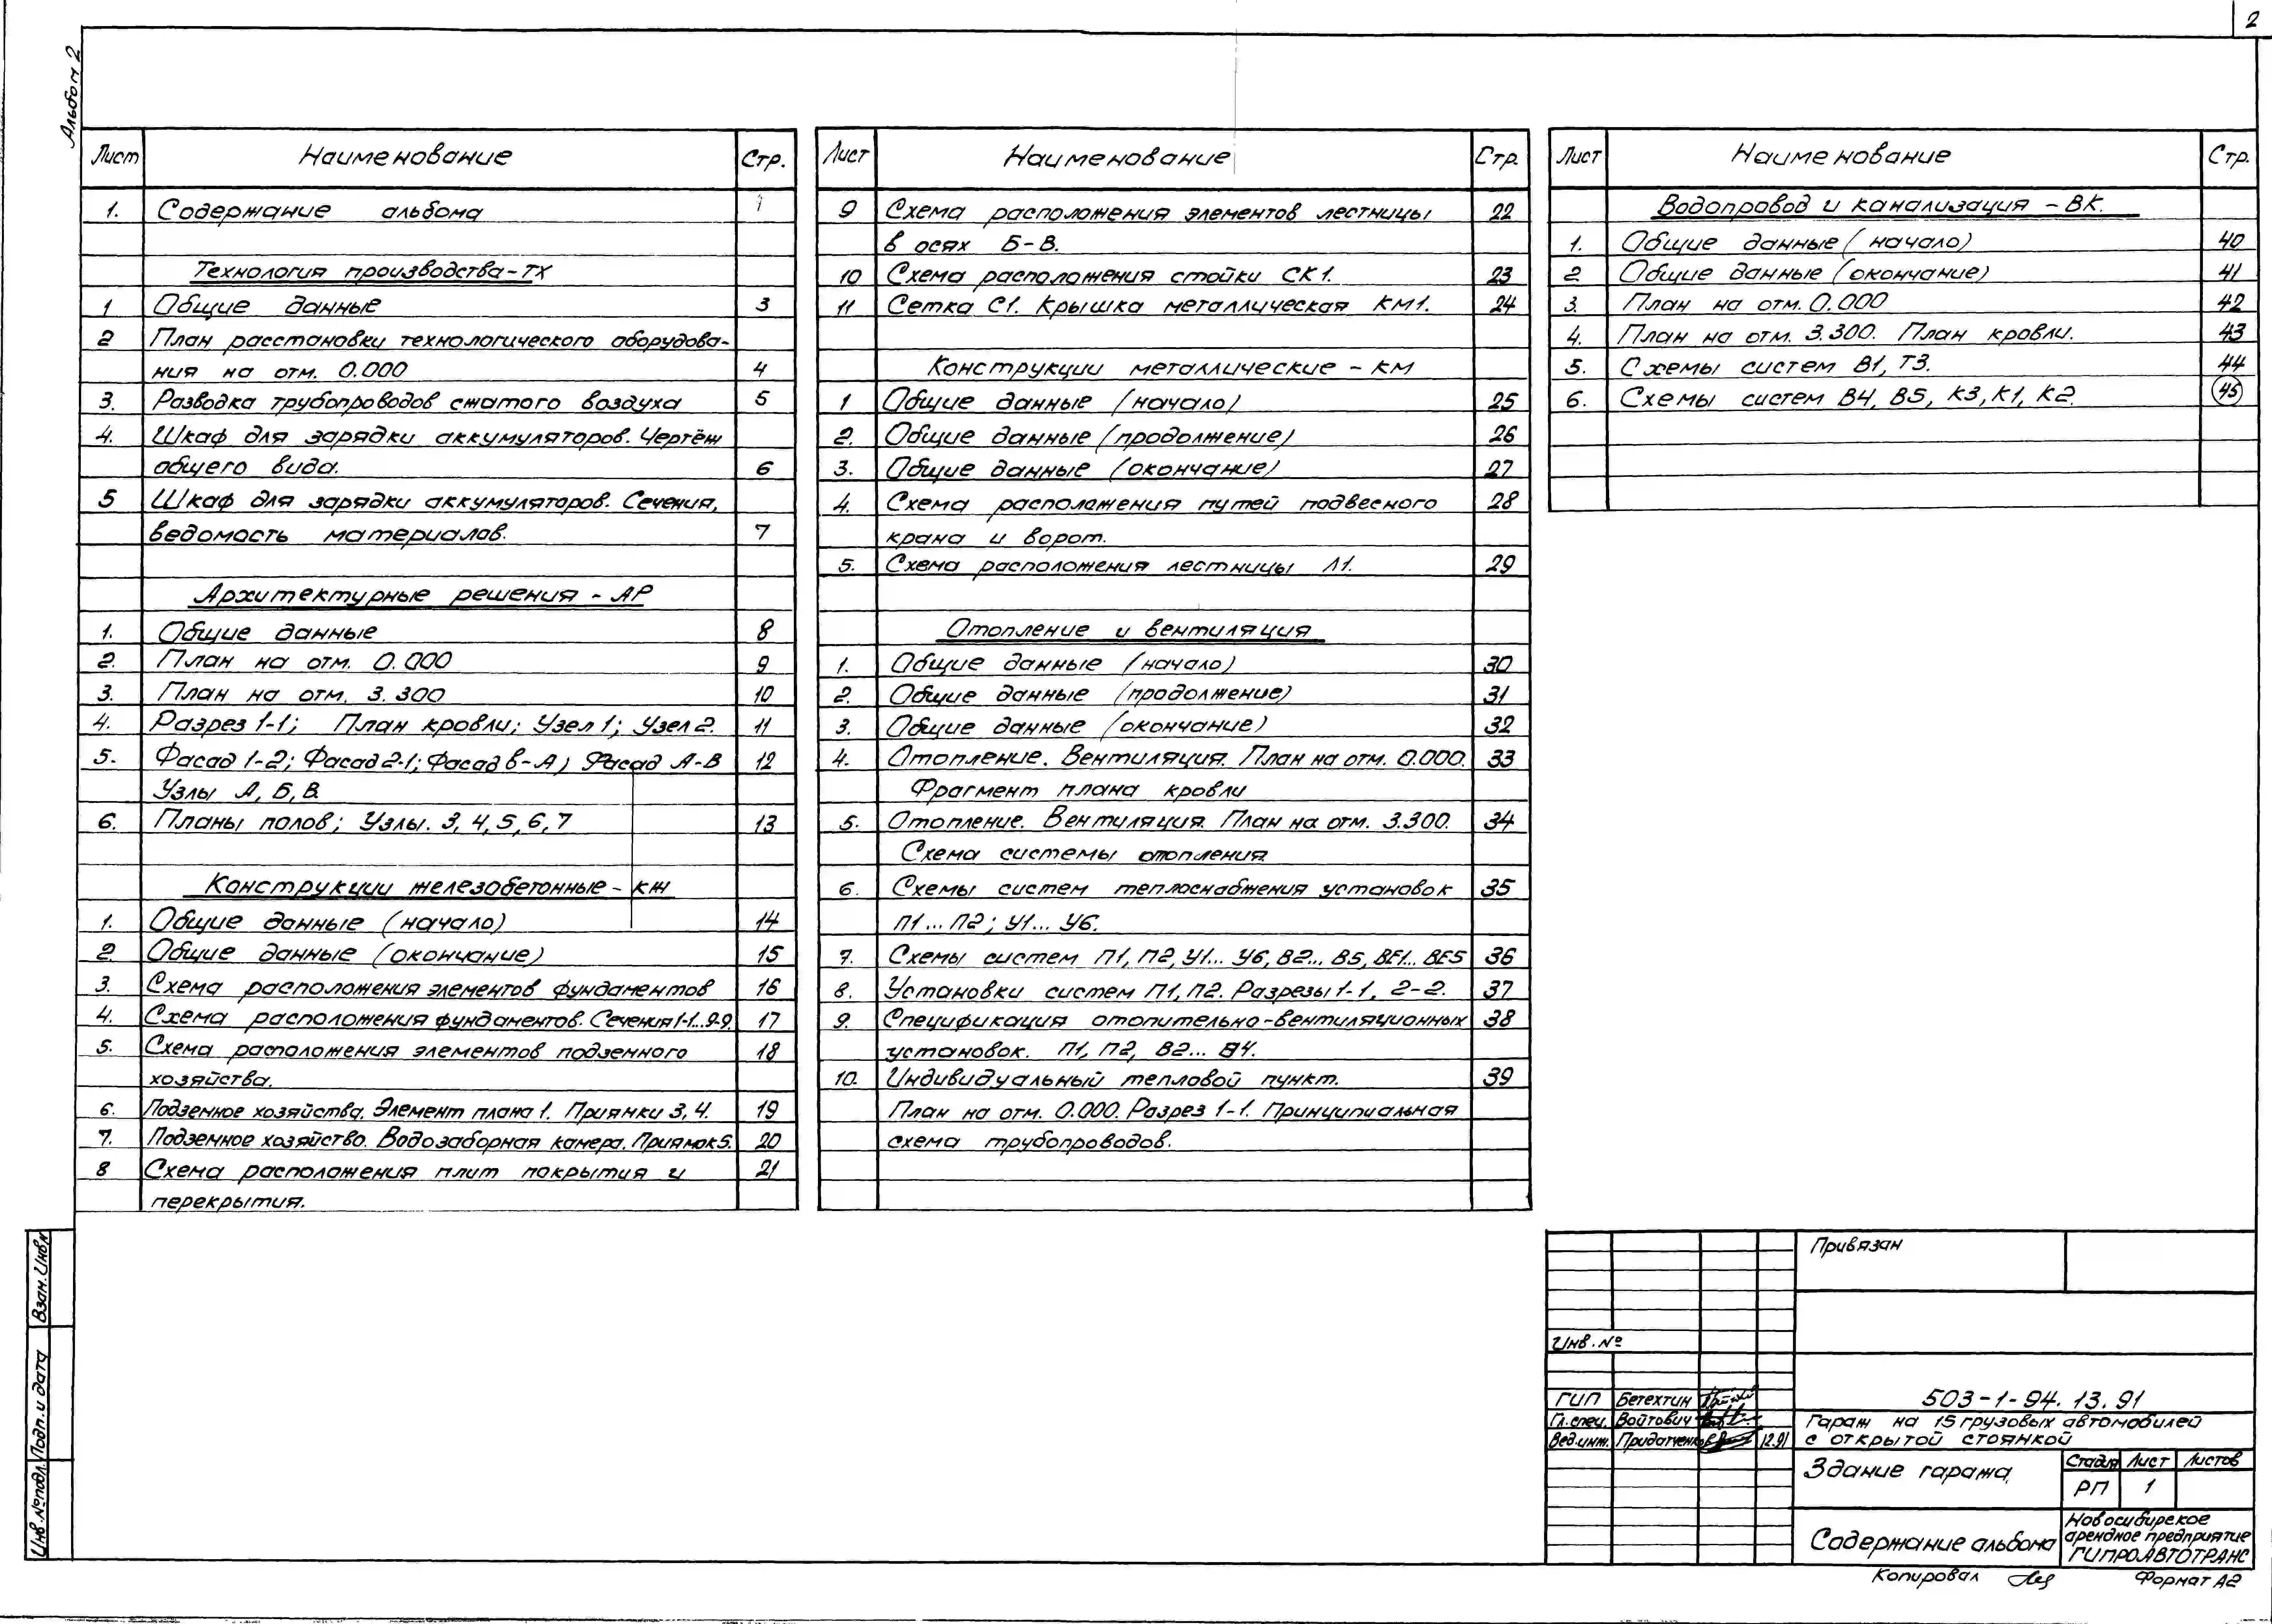 2
Альбом 2
Лист Наименование Стр.
1. Содержание альбома 1
Технология производства-ТХ
1 Общие данные 3
2 План расстановки технологического оборудова-
ния на отм. 0.000 4
3. Разводка трубопроводов сжатого воздуха 5
4. Шкаф для зарядки аккумуляторов. Чертёж
общего вида. 6
5 Шкаф для зарядки аккумуляторов. Сечения,
ведомость материалов. 7
Архитектурные решения - АР
1. Общие данные 8
2. План на отм. 0.000 9
3. План на отм. 3.300 10
4. Разрез 1-1; План кровли; Узел 1; Узел 2. 11
5. Фасад 1-2; Фасад 2-1; Фасад В-А; Фасад А-В 12
Узлы А, Б, В.
6. Планы полов; Узлы. 3, 4, 5, 6, 7 13
Конструкции железобетонные - КЖ
1. Общие данные (начало) 14
2. Общие данные (окончание) 15
3. Схема расположения элементов фундаментов 16
4. Схема расположения фундаментов. Сечения 1-1...9-9. 17
5. Схема расположения элементов подземного 18
хозяйства.
6. Подземное хозяйства. Элемент плана 1. Приямки 3, 4. 19
7. Подземное хозяйство. Водозаборная камера. Приямок 5. 20
8 Схема расположения плит покрытия и 21
перекрытия.
Лист Наименование Стр.
9 Схема расположения элементов лестницы 22
в осях Б-В.
10 Схема расположения стойки СК1. 23
11 Сетка С1. Крышка металлическая КМ1. 24
Конструкции металлические - КМ
1 Общие данные (начало) 25
2. Общие данные (продолжение) 26
3. Общие данные (окончание) 27
4. Схема расположения путей подвесного 28
крана и ворот.
5. Схема расположения лестницы Л1. 29
Отопление и вентиляция
1. Общие данные (начало) 30
2. Общие данные (продолжение) 31
3. Общие данные (окончание) 32
4. Отопление. Вентиляция. План на отм. 0.000. 33
Фрагмент плана кровли
5. Отопление. Вентиляция. План на отм. 3.300. 34
Схема системы отопления
6. Схемы систем теплоснабжения установок 35
П1...П2; У1...У6.
7. Схемы систем П1, П2, У1...У6, В2...В5, ВЕ1...ВЕ5 36
8. Установки систем П1, П2. Разрезы 1-1, 2-2. 37
9. Спецификация отопительно-вентиляционных 38
установок. П1, П2, В2...В4.
10. Индивидуальный тепловой пункт. 39
План на отм. 0.000. Разрез 1-1. Принципиальная
схема трубопроводов.
Лист Наименование Стр.
Водопровод и канализация - ВК.
1. Общие данные (начало) 40
2 Общие данные (окончание) 41
3. План на отм. 0.000 42
4. План на отм. 3.300. План кровли. 43
5. Схемы систем В1, Т3. 44
6. Схемы систем В4, В5, К3, К1, К2. 45
Взам. Инв. №
Подп. и дата
Инв. № подл.
Привязан
Инв. №
503-1-94.13.91
ГИП Бетехтин
Гл. спец. Войтович
Вед. инж. Придатченков 12.91
Гараж на 15 грузовых автомобилей
с открытой стоянкой
Здание гаража
Стадия Лист Листов
РП 1
Содержание альбома
Новосибирское
арендное предприятие
ГИПРОАВТОТРАНС
Копировал Формат А2